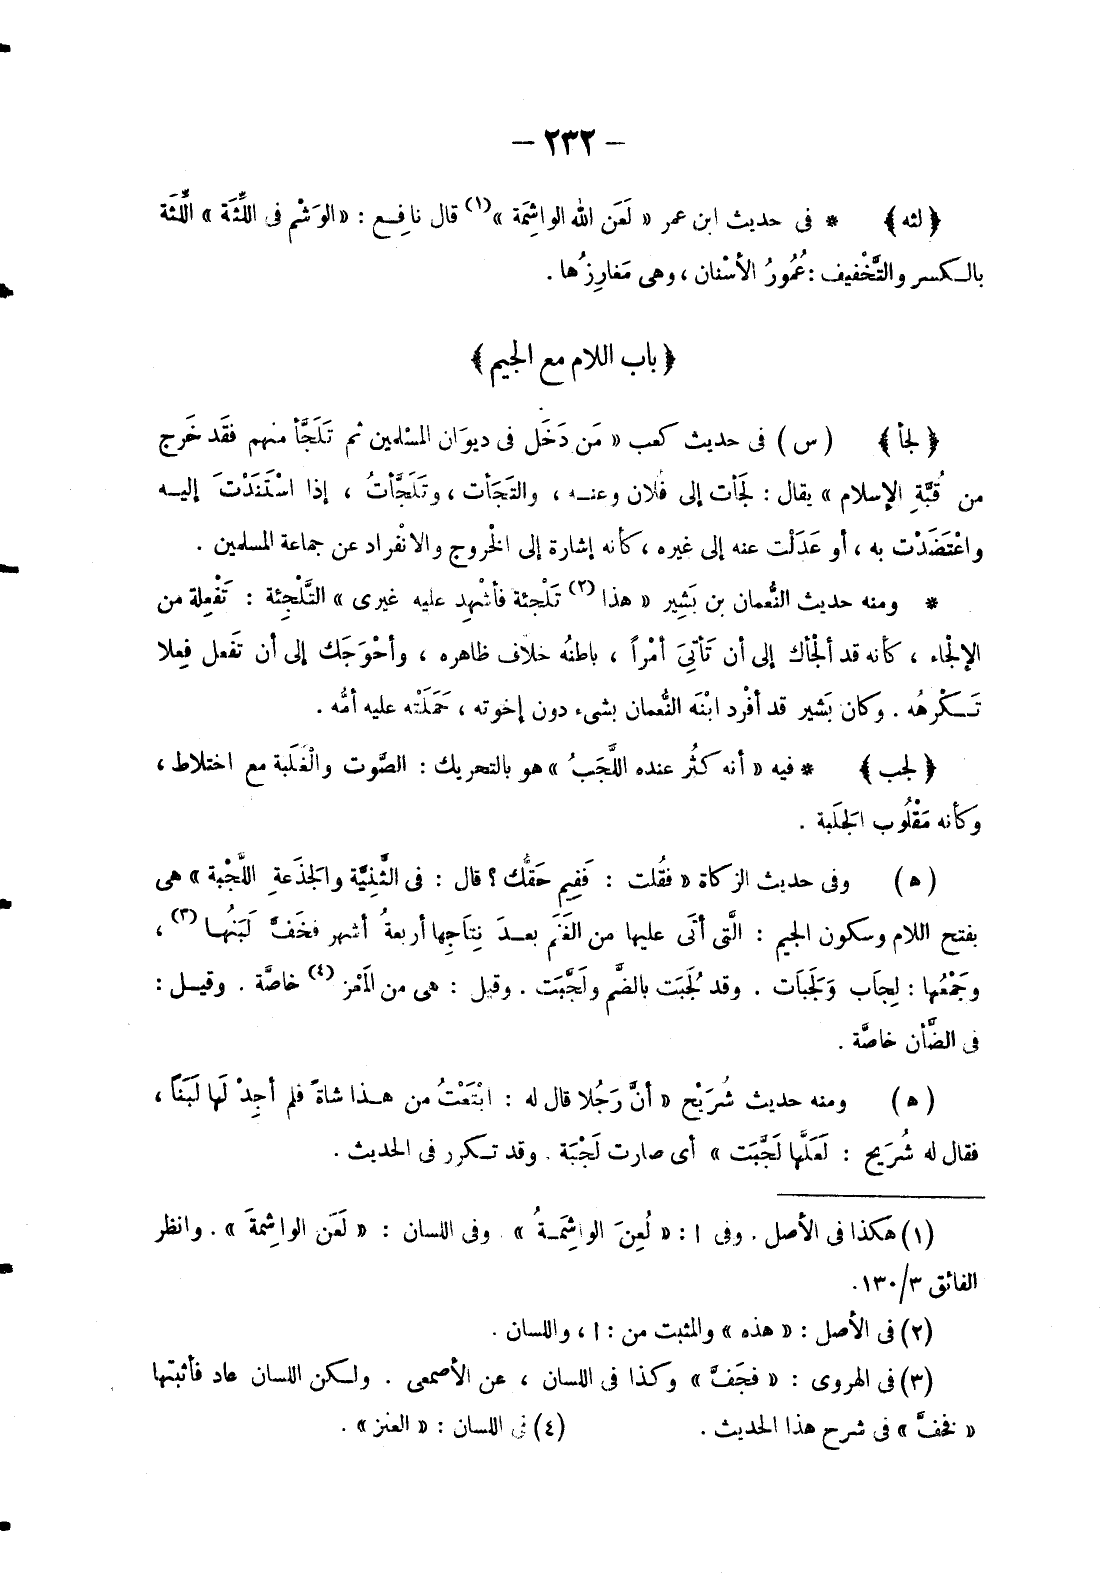 — ٢٣٢ —
﴿ لثه ﴾ * فى حديث ابن عمر « لَعَن الله الواشِمَة »(١) قال نافِع : « الوَشْم فى اللِّثَة » اللِّثَة
بالكسر والتَّخْفيف : عُمُورُ الأسْنان ، وهى مَغارِزُها .
﴿ باب اللام مع الجيم ﴾
﴿ لجأ ﴾ ( س ) فى حديث كعب « مَن دَخَل فى ديوَان المسْلمين ثم تَلَجَّأ منهم فقَد خَرج
من قُبَّةِ الإسلام » يقال : لَجَأت إلى فُلان وعنه ، والتَجَأت ، وتَلَجَّأتُ ، إذا اسْتَنَدْتَ إليه
واعْتَضَدْت به ، أو عَدَلْت عنه إلى غيره ، كأنه إشارة إلى الخروج والانْفراد عن جماعة المسلمين .
* ومنه حديث النُّعمان بن بَشِير « هذا(٢) تَلْجئة فأشْهِد عليه غيرى » التَّلْجِئة : تَفْعِلة من
الإلْجاء ، كأنه قد ألْجأك إلى أن تَأتِىَ أمْراً ، باطنُه خلاف ظاهره ، وأحْوَجَك إلى أن تَفعل فِعلا
تَكْرهُه . وكان بَشير قد أفْرد ابْنَه النُّعمان بشىء دون إخوته ، حَمَلَتْه عليه أمُّه .
﴿ لجب ﴾ * فيه « أنه كثُر عنده اللَّجَبُ » هو بالتحريك : الصَّوت والْغَلَبة مع اختلاط ،
وكأنه مَقْلُوب الجَلَبة .
( ه ) وفى حديث الزكاة « فقُلت : فَفِيمِ حَقُّك ؟ قال : فى الثَّنِيَّة والجَذَعةِ اللَّجْبة » هى
بفتح اللام وسكون الجيم : الَّتى أتَى عليها من الغَنَم بعدَ نِتَاجِها أربعةُ أشهر فخَفَّ لَبَنُها(٣) ،
وجَمْعُها : لِجَاب ولَجَبَات . وقد لَجُبَت بالضَّم ولَجَّبَت . وقيل : هى من المَعْز(٤) خاصَّة . وقيل :
فى الضَّأن خاصَّة .
( ه ) ومنه حديث شُرَيْح « أنَّ رَجُلا قال له : ابْتَعْتُ من هذا شاةً فلم أجِدْ لَها لَبَناً ،
فقال له شُرَيح : لَعَلَّها لَجَّبَت » أى صارت لَجْبَة . وقد تكرر فى الحديث .
(١) هكذا فى الأصل . وفى ا : « لُعِنَ الواشِمَةُ » . وفى اللسان : « لَعَن الواشِمةَ » . وانظر
الفائق ١٣٠/٣.
(٢) فى الأصل : « هذه » والمثبت من : ا ، واللسان .
(٣) فى الهروى : « فجَفَّ » وكذا فى اللسان ، عن الأصمعى . ولكن اللسان عاد فأثبتها
« فخفَّ » فى شرح هذا الحديث . (٤) فى اللسان : « العنز » .